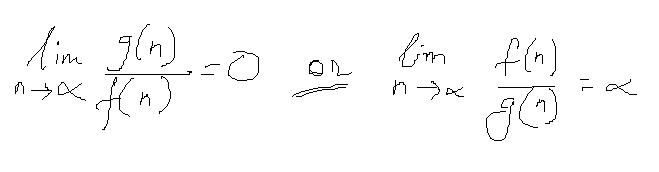 lim n→∝ g(n)/f(n) = 0 or lim n→∝ f(n)/g(n) = ∝